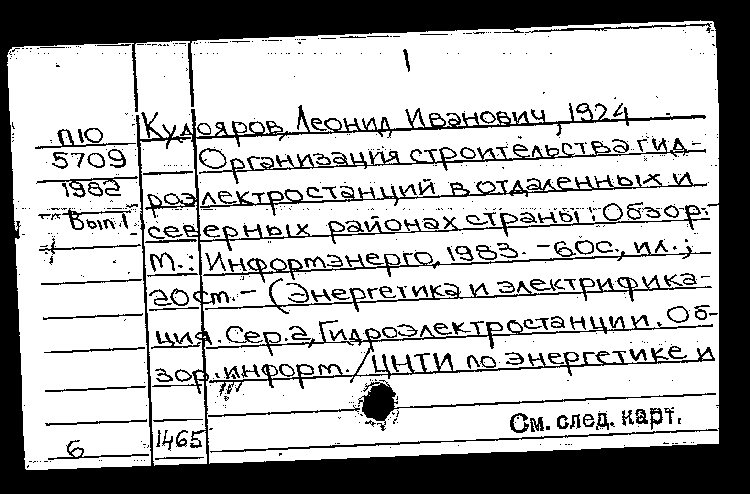 1
П10
5709
1982
Вып.1
Кудояров, Леонид Иванович, 1924
Организация строительства гид-
роэлектростанций в отдаленных и
северных районах страны: Обзор.-
М.: Информэнерго, 1983. - 60с., ил.;
20см. - (Энергетика и электрифика-
ция. Сер.2, Гидроэлектростанции. Об-
зор. информ. / ЦНТИ по энергетике и
См. след. карт.
6
1465